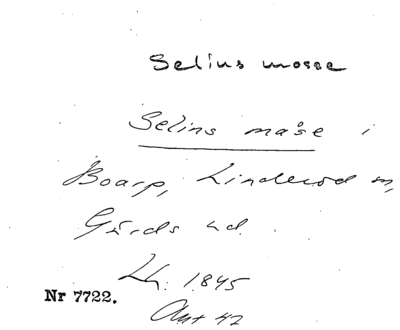 Selins mosse
Selins måse i
Boarp, Linderöd sn,
Gärds hd.
Lh. 1845
Nr 7722.
Akt 42